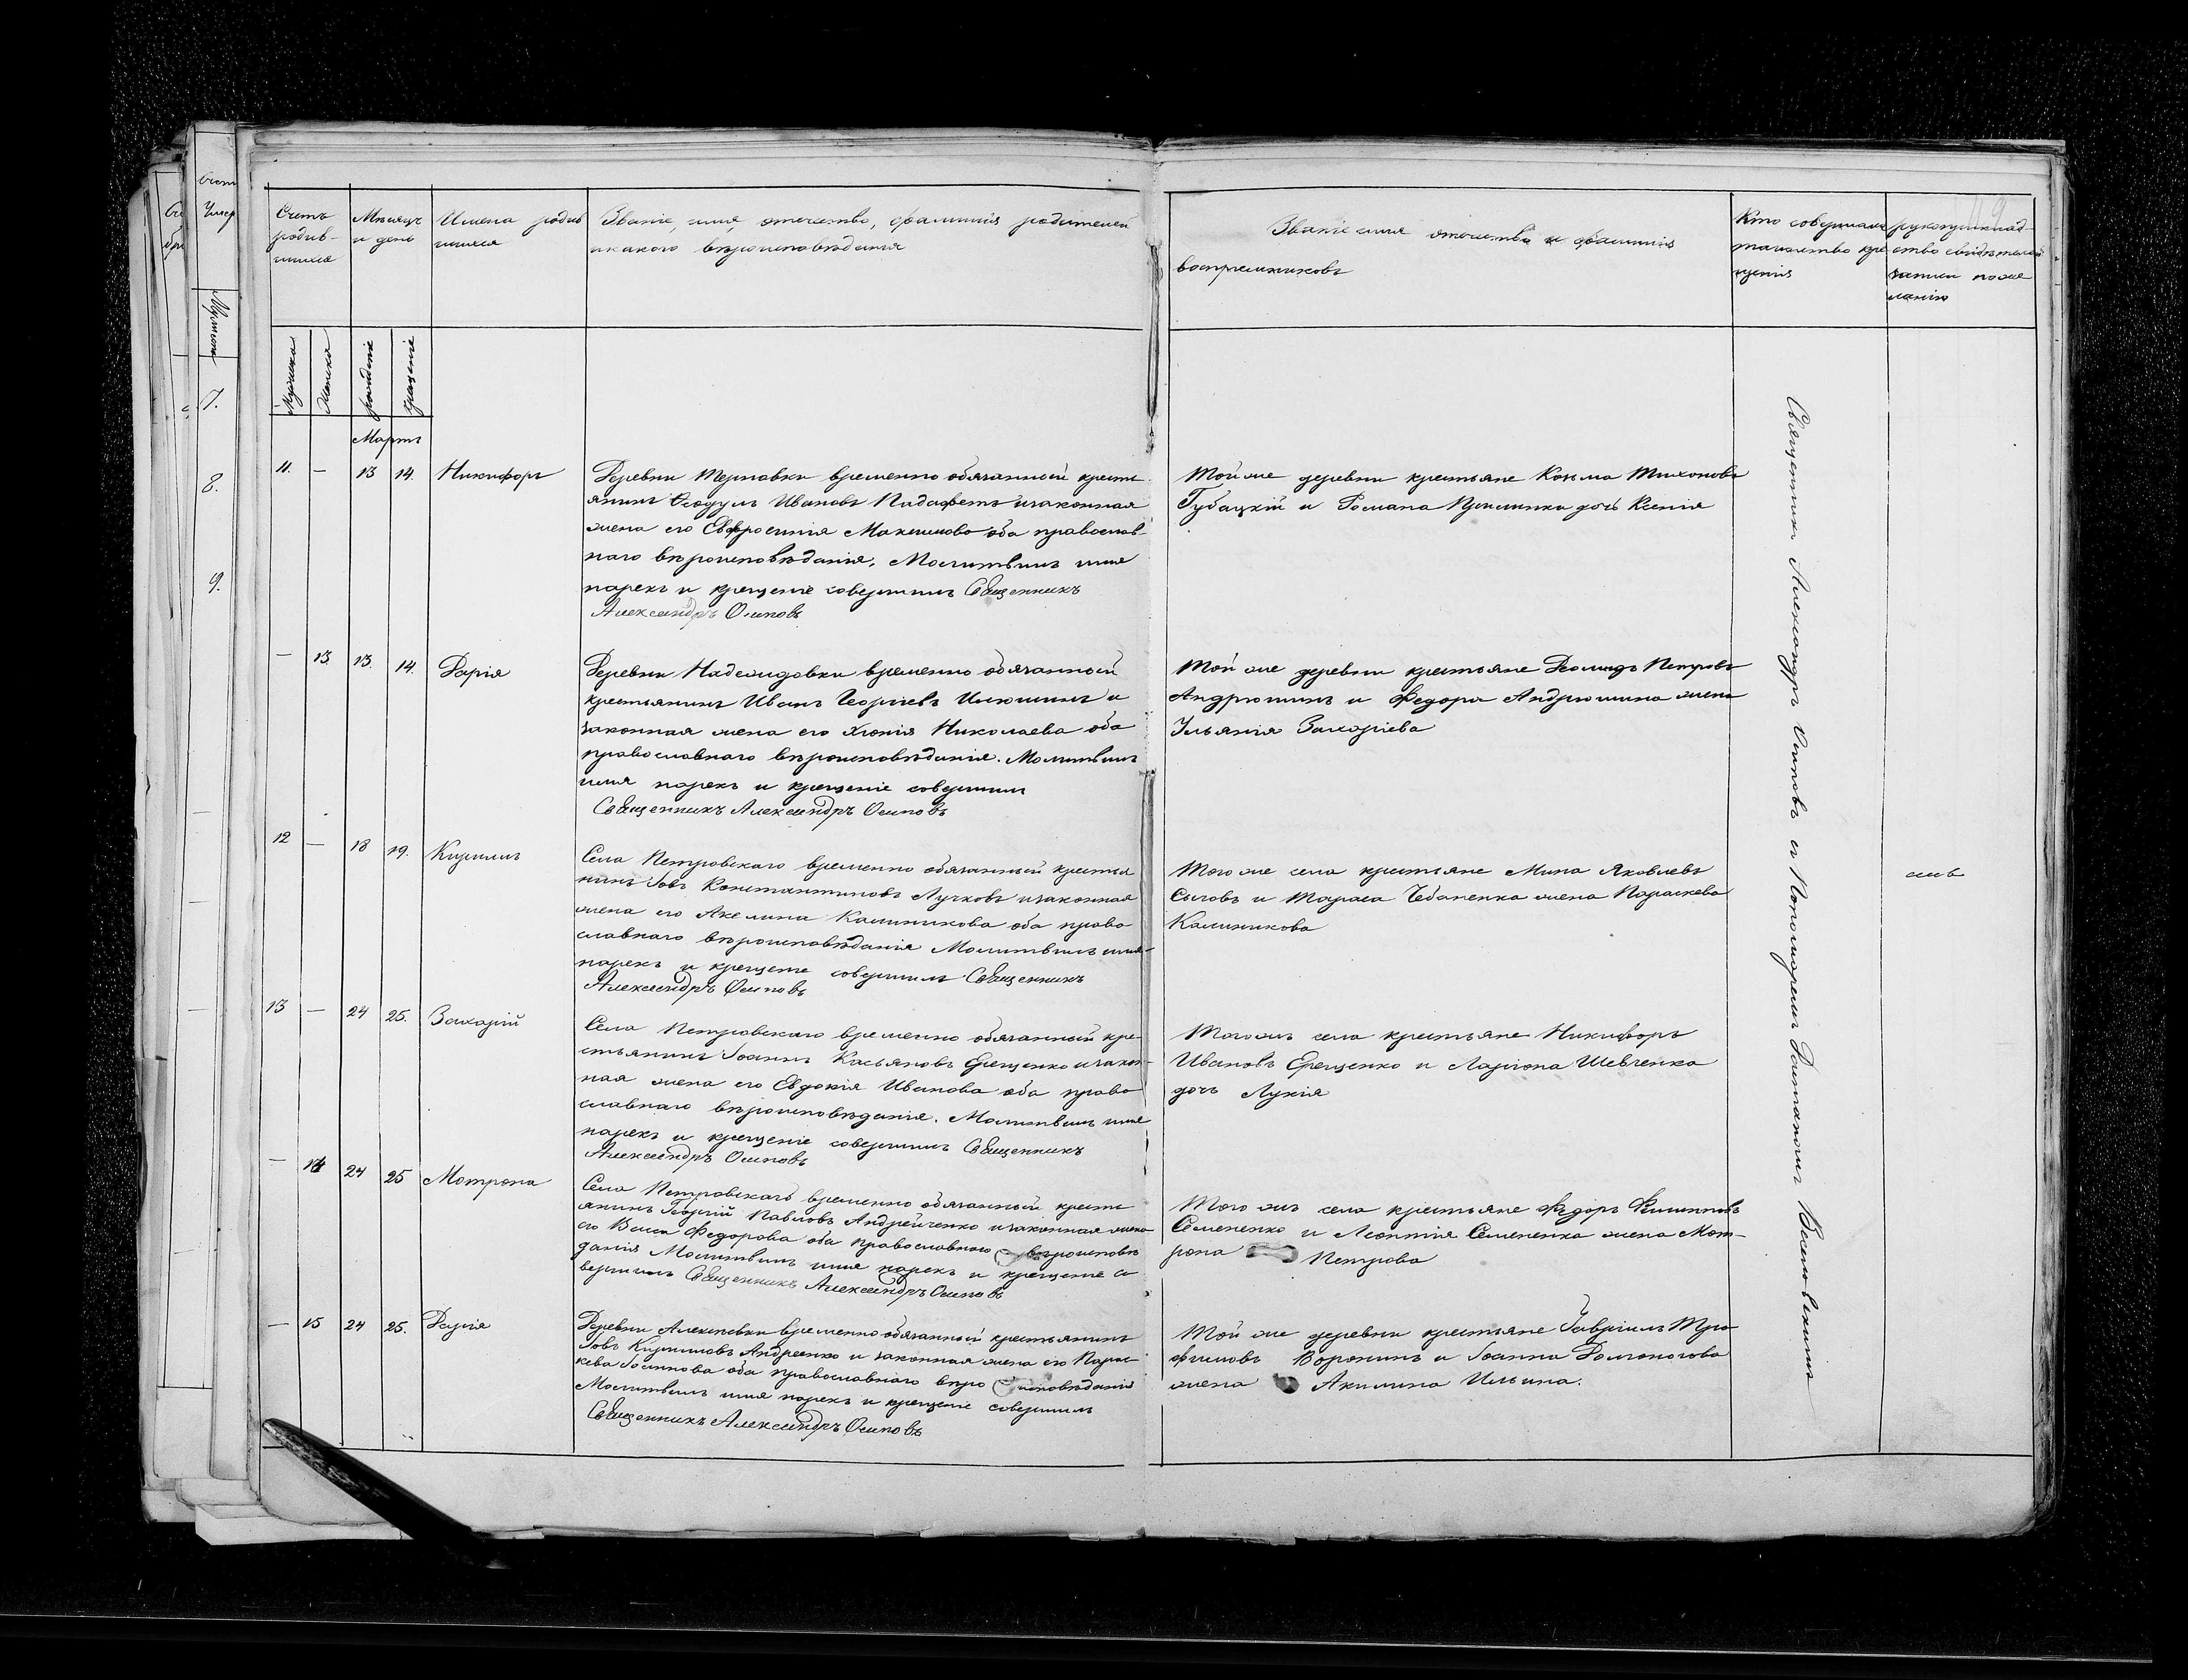 Счетъ родив-шихся
Мѣсяцъ и день
Имена родившихся
Званіе, имя, отчество, фамилія родителей
и какого вѣроисповѣданія
Званіе имя отчество и фамилія
воспріемниковъ
Кто совершалъ
таинство кре
щенія
рукоприклад-
ство свидѣтелей
записи по же
ланію
Мужска
Женска
рожденіе
крещеніе
Мартъ
11. — 13 14. Никифоръ
Деревни Терновки временно обязанный кресть
янинъ Ѳеодулъ Ивановъ изаконная
жена его Евфросинія Максимова оба православ-
наго вѣроисповѣданія. Молитвилъ имя
нарекъ и крещеніе совершилъ Священникъ
Александръ Осиповъ
Той же деревни крестьяне Козьма Тихоновъ
Губацкій и Романа дочь Ксенія
— 13 13. 14. Дарія
Деревни Надеждовки временно обязанный
крестьянинъ Иванъ Георгіевъ Илюшинъ и
законная жена его Хіонія Николаева оба
православнаго вѣроисповѣданія. Молитвилъ
имя нарекъ и крещеніе совершилъ
Священникъ Александръ Осиповъ
Той же деревни крестьяне Петровъ
Андрюшинъ и Федора Андрюшина жена
Ульянія Захаріева
12 — 18 19. Кириллъ
Села Петровскаго временно обязанный крестья
нинъ Іовъ Константиновъ Лучковъ изаконная
жена его Акелина Калиникова оба право
славнаго вѣроисповѣданія Молитвилъ имя
нарекъ и крещеніе совершилъ Священникъ
Александръ Осиповъ
Того же села крестьяне Мина Яковлевъ
Сычовъ и Тараса Чебаненка жена Параскева
Калиникова
13 — 24 25. Захарій
Села Петровскаго временно обязанный кре-
стьянинъ Іоаннъ Касьяновъ Ерещенко изакон-
ная жена его Евдокія Иванова оба право
славнаго вѣроисповѣданія. Молитвилъ имя
нарекъ и крещеніе совершилъ Священникъ
Александръ Осиповъ
Тогожъ села крестьяне Никифоръ
Ивановъ Ерещенко и Ларіона Шевченка
дочь Лукія
— 14 24 25 Мотрона
Села Петровскаго временно обязанный кресть
янинъ Георгій Павловъ Андрейченко изаконная жена
его Васса Федорова оба православнаго вѣроисповѣ
данія Молитвилъ имя нарекъ и крещеніе со
вершилъ Священникъ Александръ Осиповъ
Того жъ села крестьяне Федоръ Филипповъ
Семененко и Леонтія Семененка жена Мот-
рона Петрова
— 15 24 25. Дарія
Деревни Алексѣевки временно обязанный крестьянинъ
Іовъ Кирилловъ Андреенко и законная жена его Парас
кева Іоаннова оба православнаго вѣро исповѣданія
Молитвилъ имя нарекъ и крещеніе совершилъ
Священникъ Александръ Осиповъ
Той же деревни крестьяне Гавріилъ Тро-
фимовъ Воронинъ и Іоанна Долгоногова
жена Акилина Ильина.
Священникъ Александръ Осиповъ съ Пономаремъ
7.
8.
9.